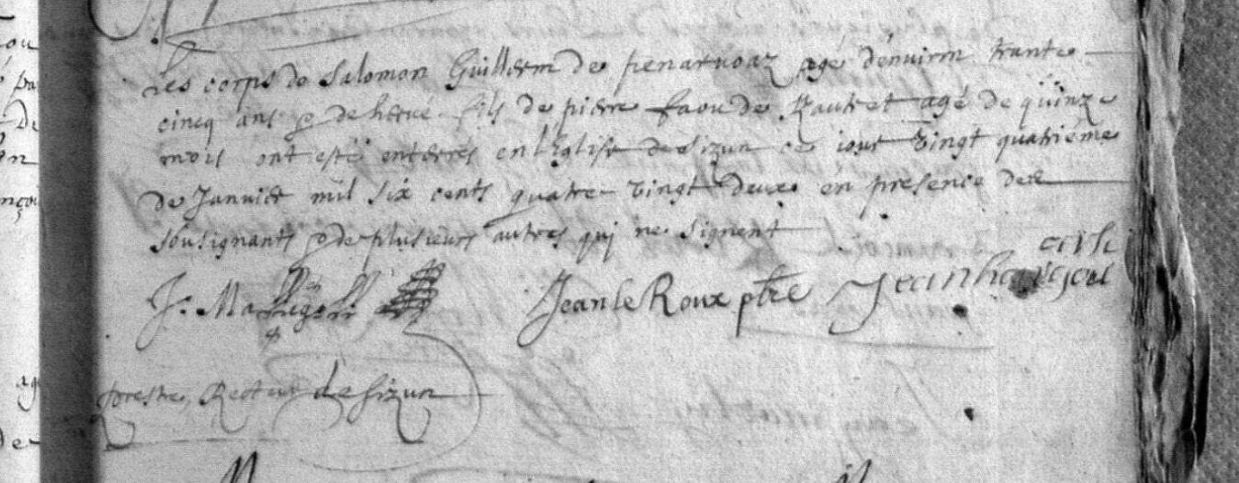 Les corps de Salomon Guillerm de penaruoaz agé d'enuirm trante
cincq ans & de herué fils de pierre faou de Kautret agé de quinze
mois ont esté enterres en l'Eglise de Sizun ce iour vingt quatriéme
de Januier mil six cents quatre vingt deux en presence des
soussignants & de plusieurs autres qui ne signent
J. Jean le Roux ptre Jean
forestie, Recteur de Sizun